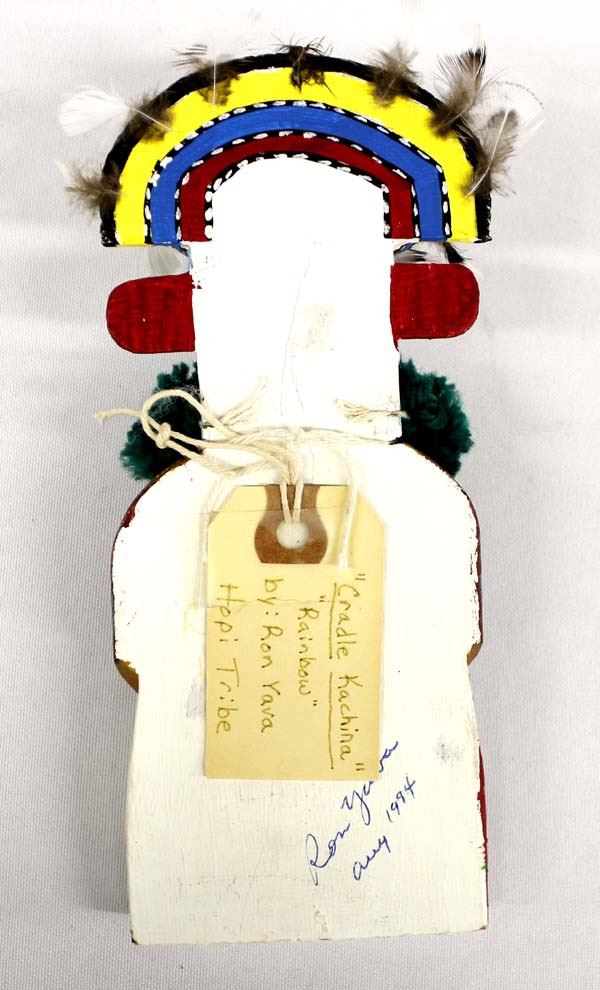 "Cradle Kachina"
"Rainbow"
by: Ron Yava
Hopi Tribe
Ron Yava
Aug 1994